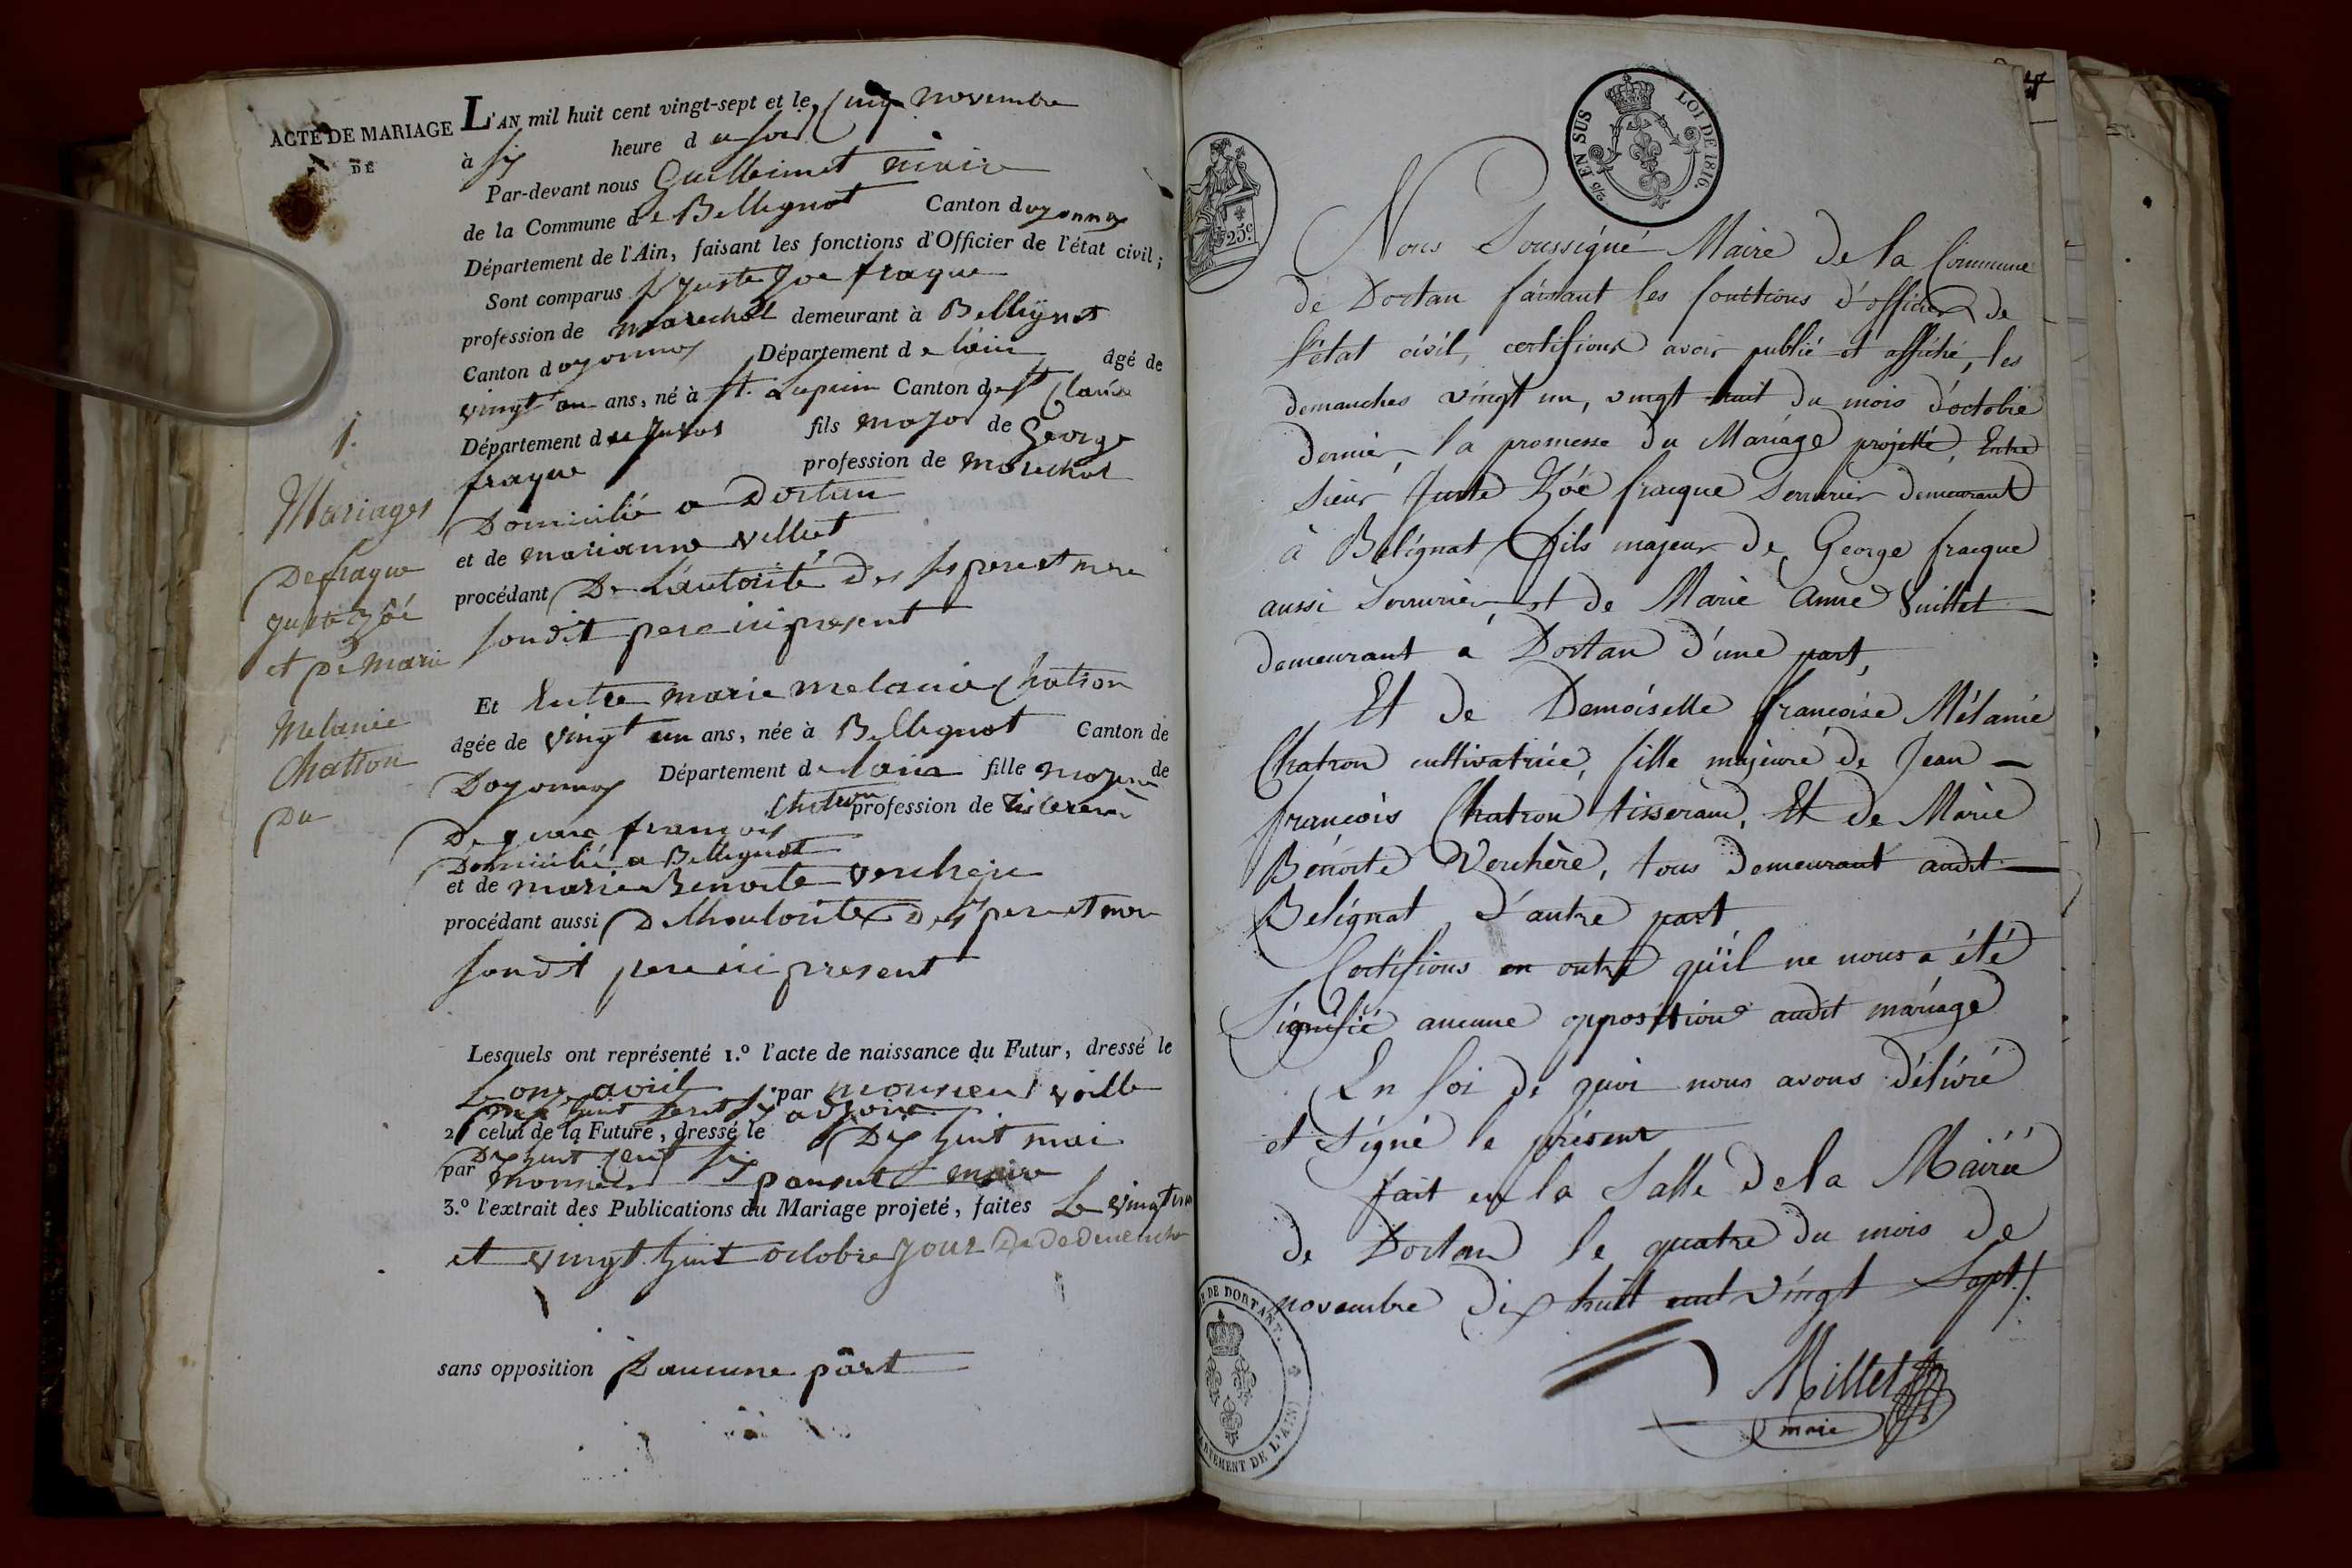 ACTE DE MARIAGE
DE
1.
Mariages
De fraque
juste zoé
et de marie
Melanie
Chatron
Du
L'AN mil huit cent vingt-sept et le cinq novembre
à six heure d u soir
Par-devant nous Guillemet maire
de la Commune d e Bellignat Canton doyonnax
Département de l'Ain, faisant les fonctions d'Officier de l'état civil;
Sont comparus Sr juste Zoe fraque
profession de marechal demeurant à Bellignat
Canton doyonnax Département d e lain âgé de
vingt un ans, né à st. Lupicin Canton de st Claude
Département d fils major de George
fraque profession de marechal
Domicilié a Dortan
et de marianne villet
procédant De L'autorité des ses pere et mere
sondit pere ici present
Et Entre marie melanie Chatron
âgée de vingt un ans, née à Bellignat Canton de
Doyonnax Département de lain fille de
De jean françois Chatron profession de
Domicilié a Bellignat
et de marie Benoite Verchere
procédant aussi De pere et mere
sondit pere ici present
Lesquels ont représenté 1.º l'acte de naissance du Futur, dressé le
Le onze avril par monsieur
mil huit cent six adjoint
2º celui de la Future, dressé le Dix huit mai
Dix huit cent six
par monsieur maire
3.º l'extrait des Publications du Mariage projeté, faites Le vingt un
et vingt huit octobre jour de
sans opposition D'aucune part
2/5 EN SUS
LOI DE 1816.
25c
Nous Soussigné Maire de la Commune
de Dortan faisant les fonctions d'officier de
l'état civil, certifions avoir publié et affiché, les
demanches vingt un, vingt huit du mois d'octobre
dernier, la promesse du Mariage projetté, Entre
Sieur Juste Zóé fracque Serrurier demeurant
à Belignat, fils majeur de George fracque
aussi Serrurier et de Marie Anne Vuillet
demeurant à Dortan d'une part,
Et de Demoiselle françoise Mélanie
Chatron cultivatrice, fille majeure de Jean
françois Chatron tisserand, Et de Marie
Benoite Verchère, tous demeurant audit
Belignat d'autre part
Certifions en outre qu'il ne nous a été
Signifié aucune opposition audit mariage
En foi de quoi nous avons délivré
et signé le présent
fait en la Salle de la Mairie
de Dortan le quatre du mois de
novembre dix huit cent vingt Sept /.
Millet
maire
DE DORTANT.
DEPARTEMENT DE L'AIN